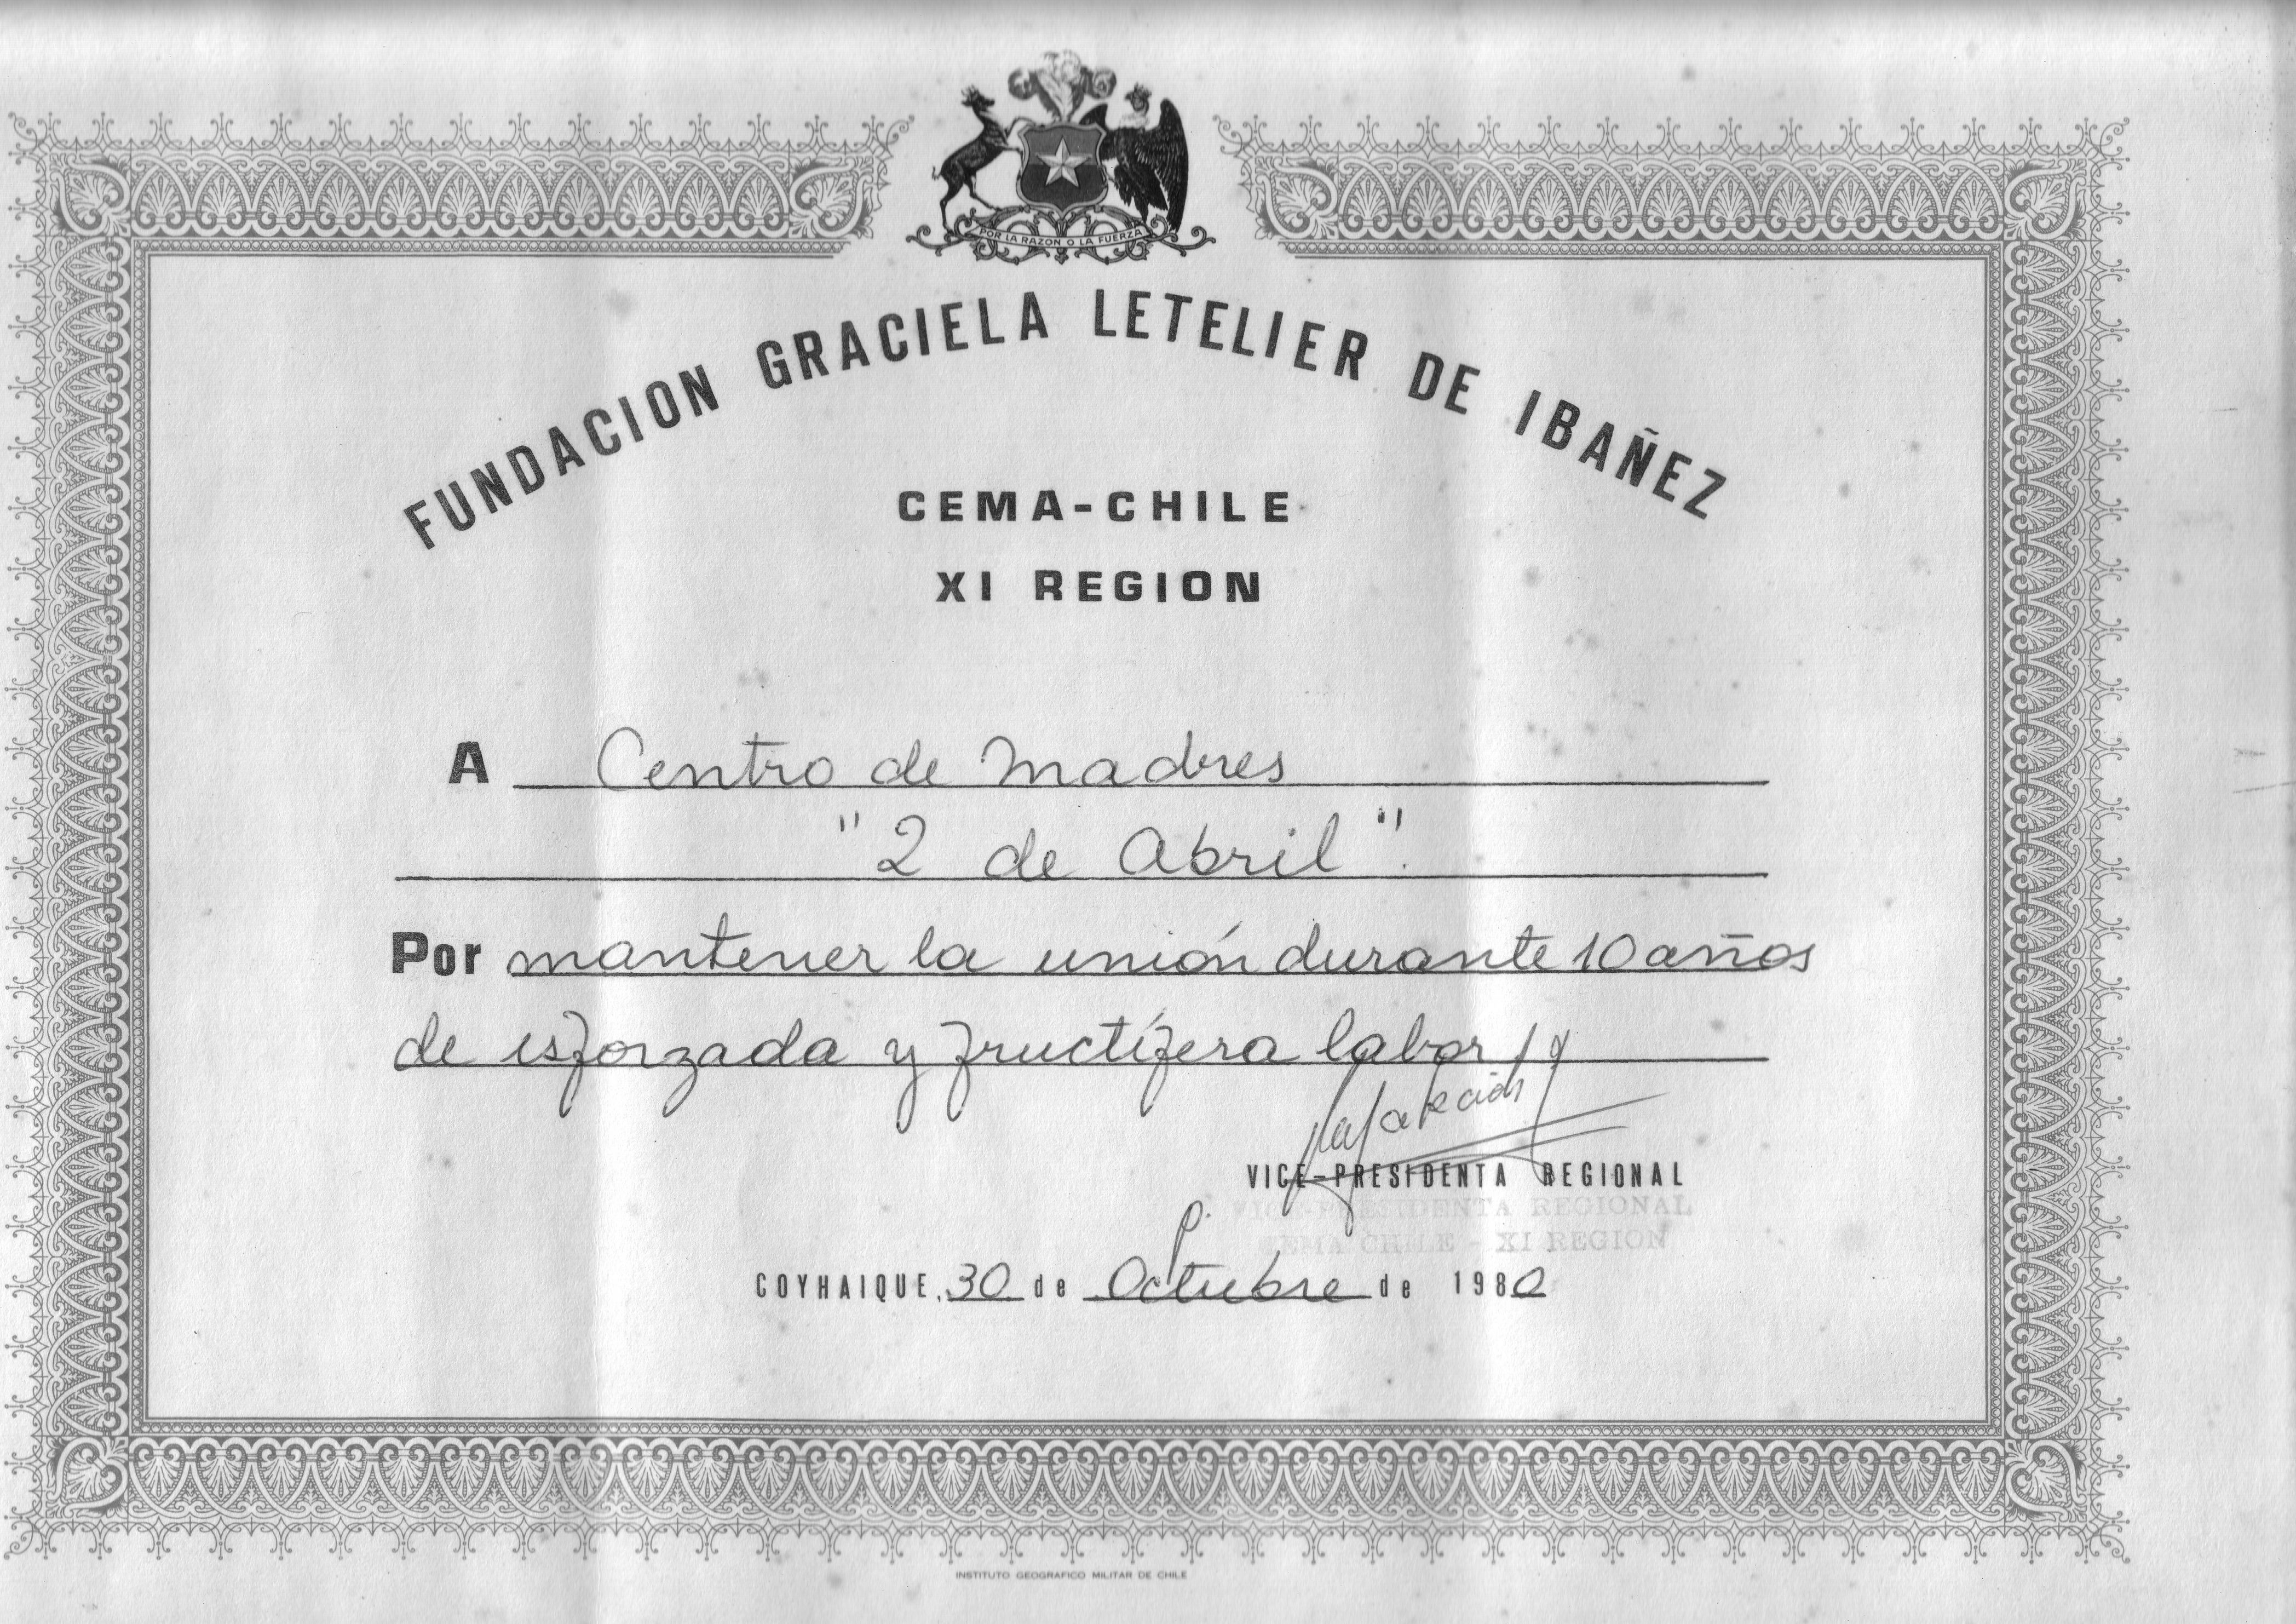 POR LA RAZON O LA FUERZA
FUNDACION GRACIELA LETELIER DE IBAÑEZ
CEMA-CHILE
XI REGION
A Centro de Madres
"2 de Abril".
Por mantener la unión durante 10 años
de esforzada y fructífera labor
VICE-PRESIDENTA REGIONAL
VICE-PRESIDENTA REGIONAL
CEMA CHILE - XI REGION
p.
COYHAIQUE, 30 de Octubre de 1980
INSTITUTO GEOGRAFICO MILITAR DE CHILE